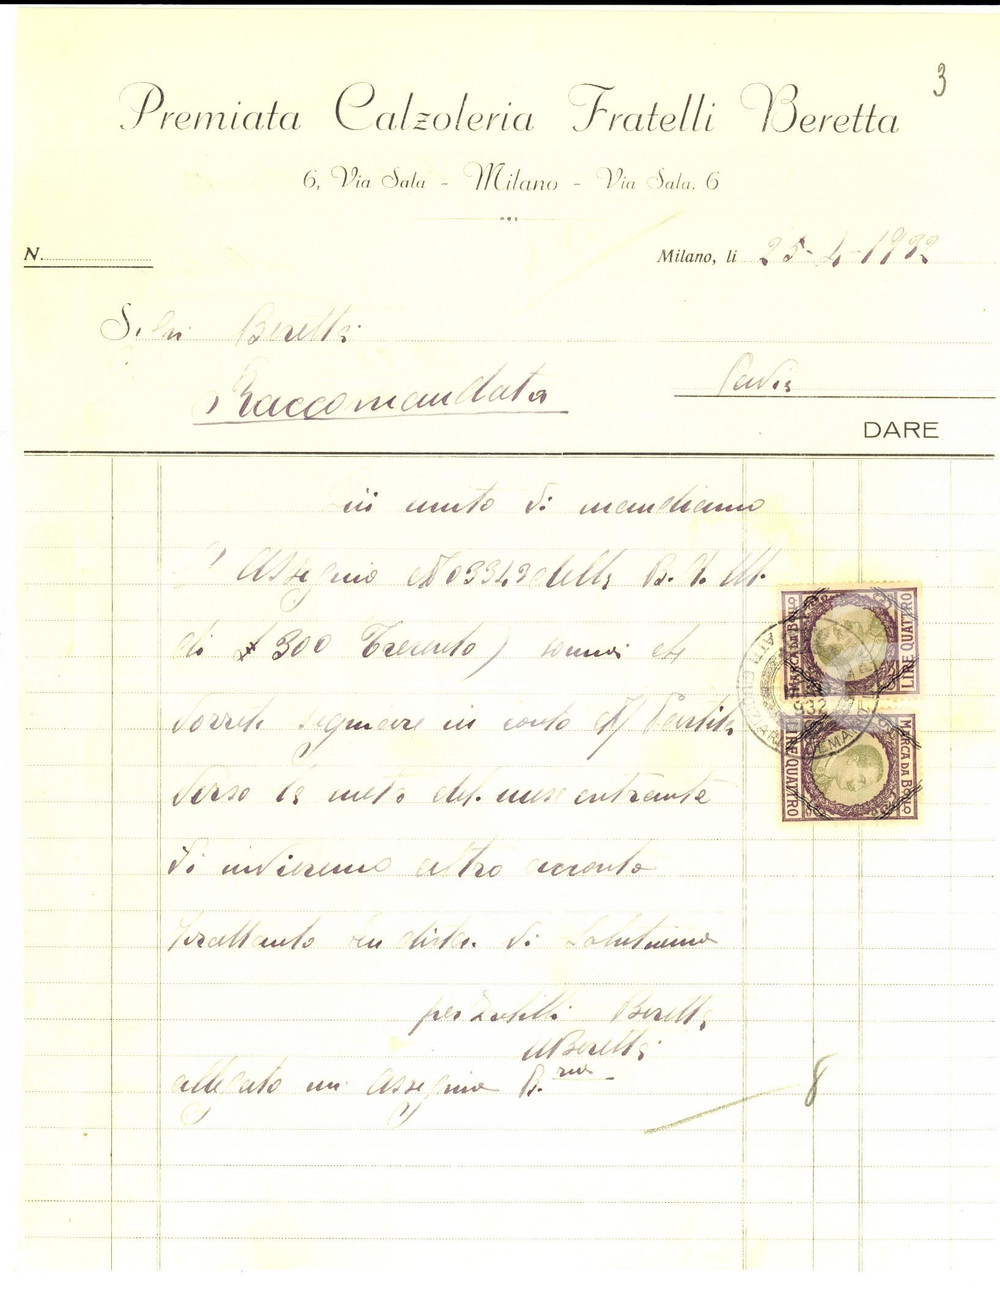 3
Premiata Calzoleria Fratelli Beretta
6, Via Sala - Milano - Via Sala, 6
N.
Milano, li 25-4-1932
Beretta
Raccomandata
Pavia
DARE
unito Vi mandiamo
l'Assegno N 03343 della B. P. M.
di £ 300 Trecento) somma che
Vorrete segnare in conto N/ Partita
Verso la metà del mese entrante
Vi invieremo altro acconto
frattanto Vi Salutiamo
per Fratelli Beretta
Beretta
allegato un assegno B.
8
MARCA DA BOLLO
LIRE QUATTRO
932
MARCA DA BOLLO
LIRE QUATTRO